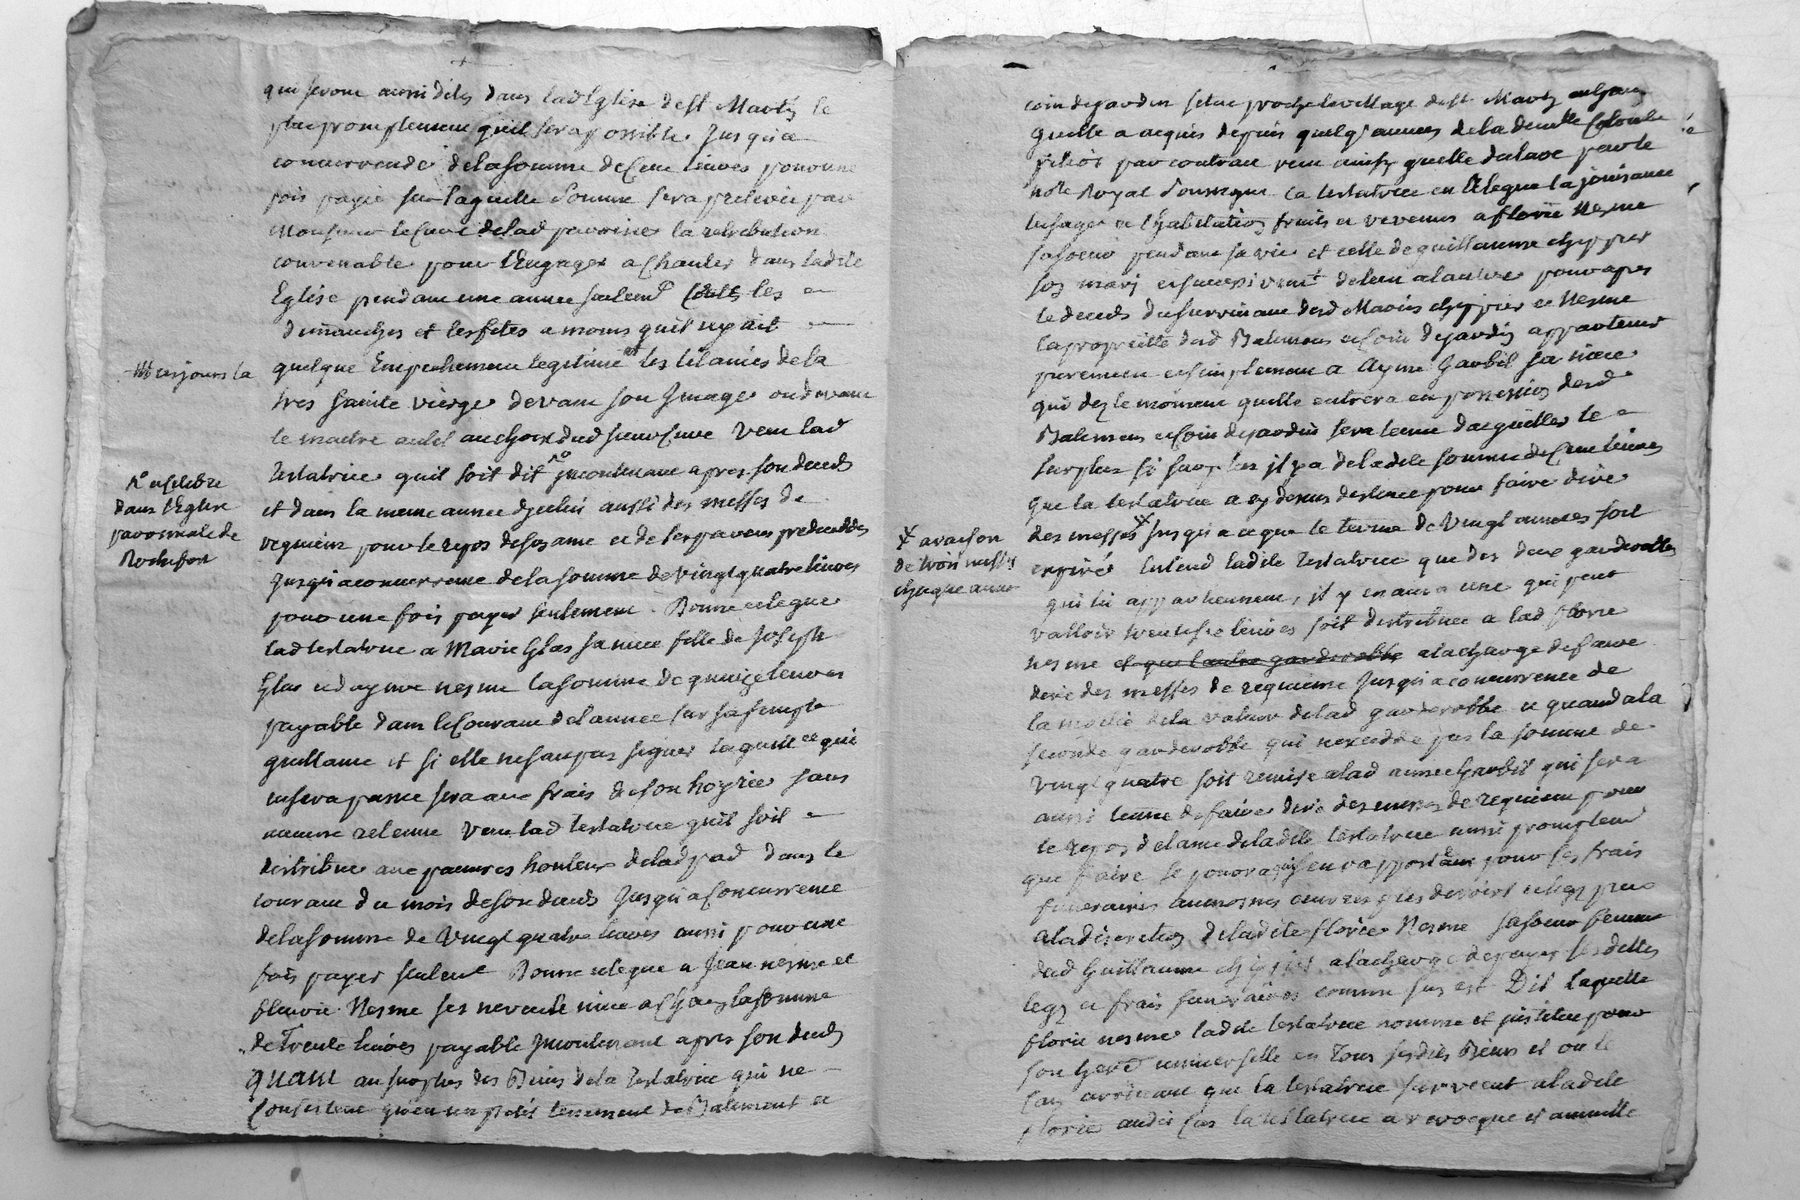 qui seront aussi dites dans lad Eglise de St Martin le
plus promptement quil sera possible Jusqu'a
concurrende de la somme de Cent livres pour une
fois payée sur laquelle somme sera prelevée par
Monsieur le Curé de lad paroisse la retribution
convenable pour l'Engager a Chanter dans ladite
Eglise pendant une année seulemt les
dimanches et les fetes a moins quil ny ait
quelque Empechement legitime les litanies de la
tres sainte vierge devant son Image ou devant
le maitre autel au choix dud sieur Curé veut lad
Testatrice quil soit dit incontinent apres son deceds
et dans la meme année dicelui aussi des messes de
requiem pour le repos de son ame et de ses parens predecedés
Jusqu'a concurrence de la somme de vingt quatre livres
pour une fois payer seulement. Donne et legue
lad testatrice a Marie Glas sa niece fille de Joseph
Glas et daymé nesme la somme de quinze livres
payable dans le Courant de l'année sur sa simple
quittance et si elle ne scait pas signer laquittce qui
en sera passée sera aux frais de son hoyrie sans
aucune retenue veut lad testatrice quil soit
distribué aux pauvres honteux de lad pad dans le
courant du mois de son deceds Jusqu'a Concurrence
de la somme de vingt quatre livres aussi pour une
fois payer seulemt Donne et legue a Jean nesme et
fleurie Nesme ses neveu et niece a Chacun la somme
de Trente livres payable Incontinent apres son deceds
quant au surplus des Biens de la Testatrice qui ne
Consistent qu'en un petit tenement de Batiment et
ces jours la
et celebré
dans l'Eglise
paroissiale de
Rochefort
coin de jardin situé proche le village de St Martin
quelle a acquis depuis quelq. années de la demlle
par contrat reçu ainsy quelle par le
nore Royal la testatrice en lelegue la jouisance
lusage et l'habitation fruits et revenus a florie Nesme
sa soeur pendant sa vie et celle de guillaume chippier
son mari et successivemt de lun a lautre pour apres
le deceds du survivant desd Mariés chippier et Nesme
la proprieté dud Batiment et Coin de jardin appartenir
purement et simplement a Ayme Garbit sa niece
qui dez le moment quelle entrera en possession desd
Batiment et Coin de jardin sera tenue dacquitter le
surplus si surplus il y a de ladite somme de Cent livres
que la testatrice a cy dessus destinée pour faire dire
des messes Jusqu'a ce que le terme de vingt années soit
expiré Entend ladite Testatrice que des deux garderobbes
qui lui appartiennent, il y en aura une qui peut
valloir trente six livres soit distribuée a lad florie
nesme et que lautre garderobbe a la charge de faire
dire des messes de requieme Jusqu'a concurrence de
la moitié de la valeur de lad garderobbe et quand a la
seconde garderobbe qui nexcedde pas la somme de
vingt quatre soit remise a lad aimée Garbit qui sera
aussi tenue de faire dire des messes de requiem pour
le repos de lame de ladite testatrice aussi promptemt
que faire se poura en rapportant pour ses frais
funeraires aumosnes œuvres pies et legs pieux
a la discretion de ladite florie Nesme sa soeur femme
dud Guillaume chippier a la charge de payer ses dettes
legs et frais funeraires comme sus est Dit laquelle
florie nesme ladite testatrice nomme et institue pour
son herre universelle en Tous sesdits Biens et ou le
Cas arriveroit que la testatrice survecut a ladite
florie audit Cas la testatrice a revoque et annullé
a raison
de trois messes
chaque année